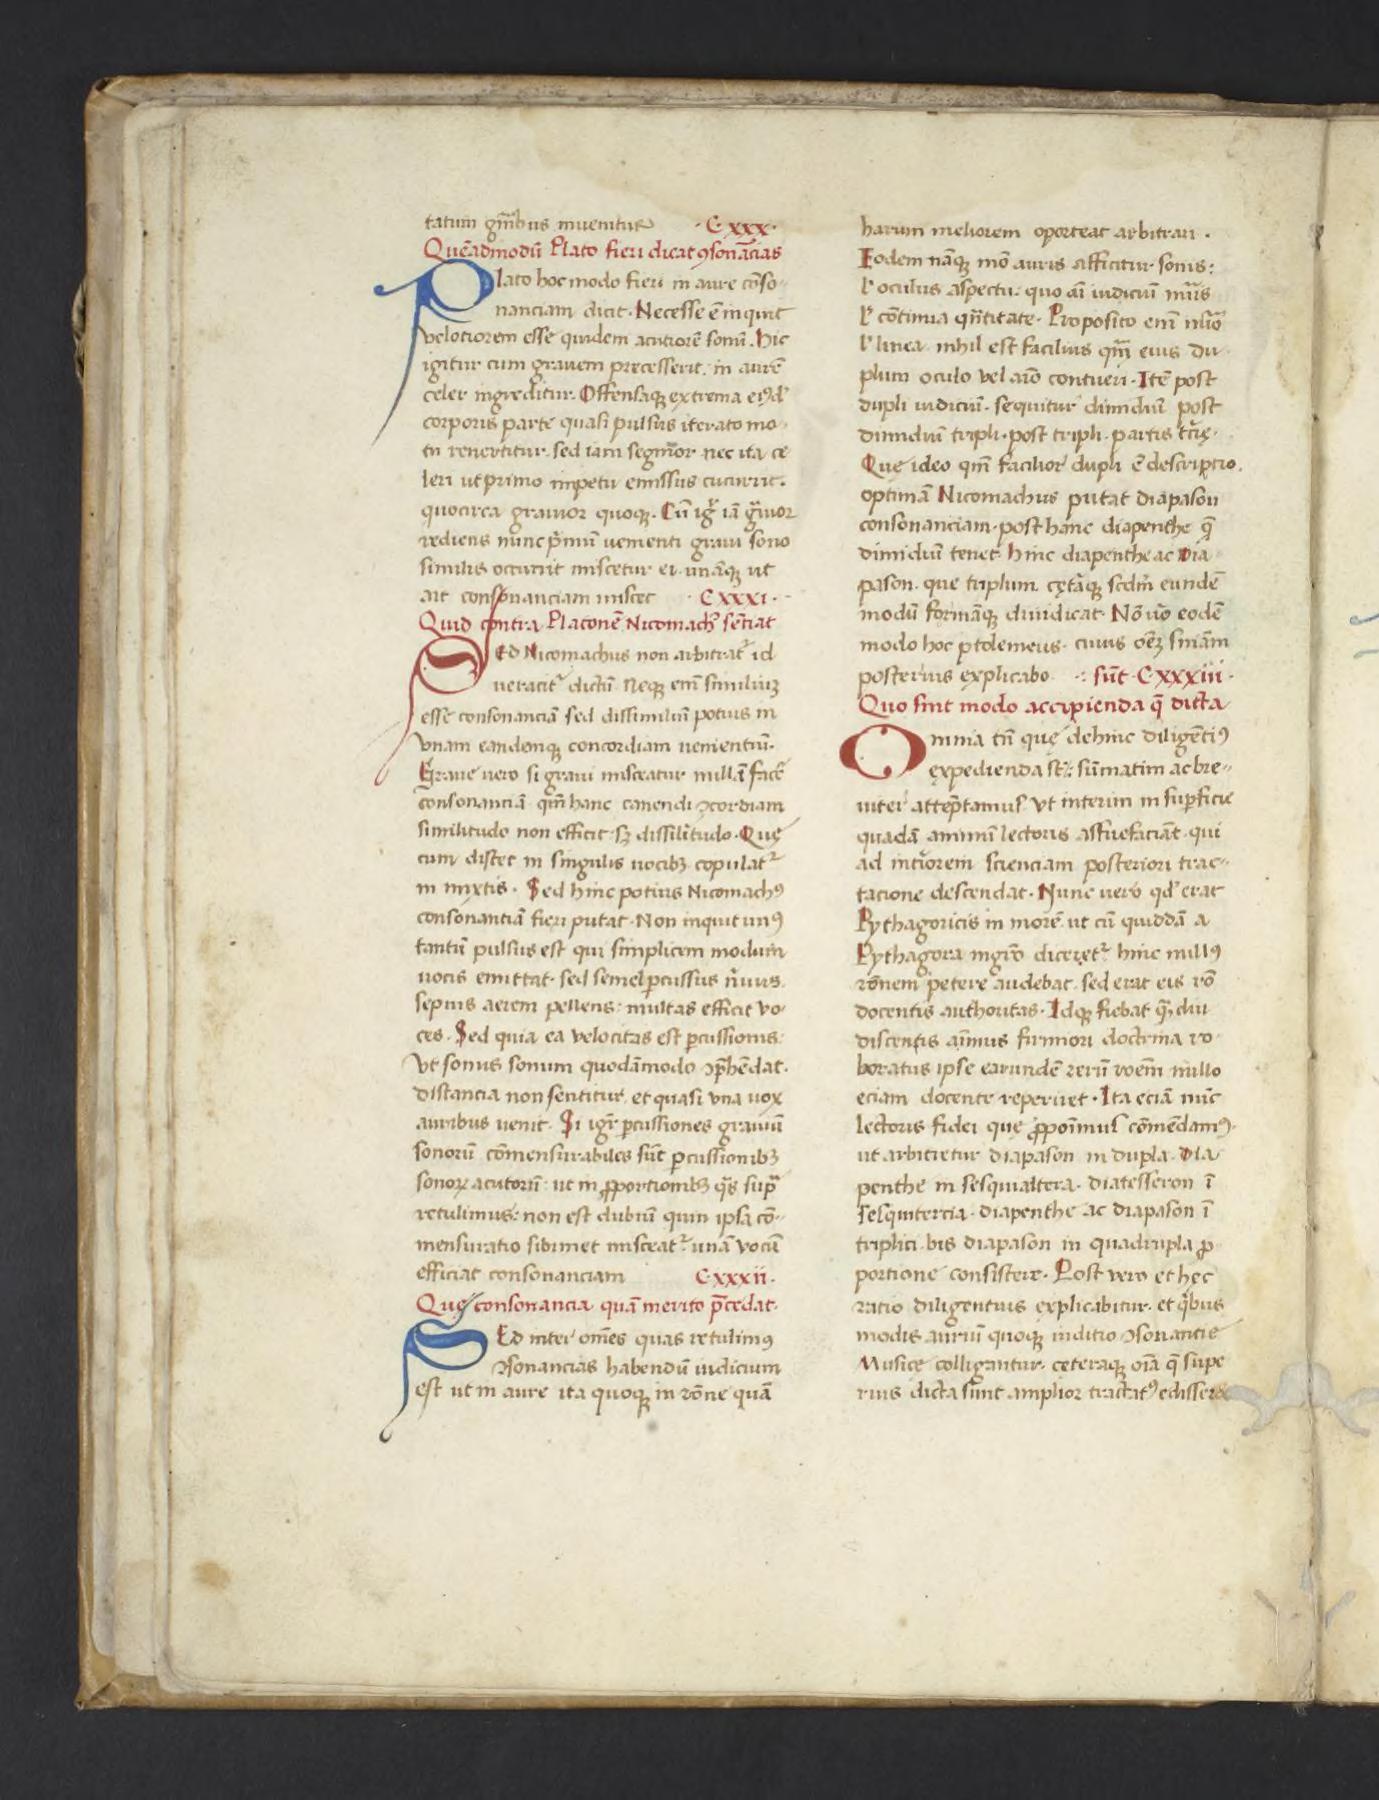 tatum gn̄ibus inuenitur · C· xxx·
Quēadmodū Plato fieri dicat ꝯsonācias
Plato hoc modo fieri in aure cōso-
nanciam dicit · Necesse ē inquit
velotiorem esse quidem acutiorē sonū. Hic
igitur cum grauem precesserit. in aurē
celer ingreditur. Offensaqꝫ extrema eiꝰdꝰ
corporis parte quasi pulsus iterato mo-
tu reuertitur. sed iam segnior nec ita ce
leri ut primo impetu emissus cucurrit.
quocirca grauior quoqꝫ. Cū igr̄ iā gͣuior
rediens nunc pͥmū uementi graui sono
similis occurrit miscetur ei · unāqꝫ ut
ait consonanciam miscet · C xxxi ·
Quid contra Platonē Nicomachꝰ sētiat
Sed Nicomachus non arbitratᷣ id
ueracitᷣ dictū. Neqꝫ enī similiuꝫ
esse consonanciā sed dissimiliū potius in
vnam eandemqꝫ concordiam uenientiū.
Graue uero si graui misceatur nullā facē
consonanciā qm̄ hanc canendi ꝯcordiam
similitudo non efficit · sꝫ dissilitudo · Quę
cum distet in singulis uocibꝫ copulatᷣ
in mixtis · Sed hinc potius Nicomachꝰ
consonantiā fieri putat · Non inquit unꝰ
tantū pulsus est qui simplicem modum
uocis emittat · sed semel ꝑcussus nͤuus
sepius aerem pellens: multas efficit vo-
ces. Sed quia ea velocitas est ꝑcussionis:
Vt sonus sonum quodāmodo ꝯp̄hēdat.
distancia non sentitur. et quasi vna uox
auribus uenit · Si igr̄ ꝑcussiones grauiū
sonorū cōmensurabiles sūt ꝑcussionibꝫ
sonoꝝ acutorū: ut in ꝓportionibꝫ qͣs supͣ
retulimus: non est dubiū quin ipsa cō-
mensuratio sibimet misceatᷣ · unā vocū
efficiat consonanciam C· xxxii ·
Quę consonancia quā merito p̄cedat·
Sed inter om̄es quas retulimꝰ
ꝯsonancias habendū iudicium
est ut in aure ita quoqꝫ in rōne quā
harum meliorem oporteat arbitrari ·
Eodem nāqꝫ mō auris afficitur sonis:
lꝰ oculus aspectu: quo aī iudiciū nūs
lꝰ cōtinua qn̄titate · Proposito enī nūo
lꝰ linea nihil est facilius qm̄ eius du
plum oculo vel aīo contueri · Itē post
dupli iudiciū · sequitur dimidiū post
dimidiū tripli · post tripli · partis tͬcię ·
Que ideo qm̄ facilior dupli ē descriptio.
optimā Nicomachus putat diapason
consonanciam · post hanc diapenthe q̄
dimidiū tenet · hinc diapenthe ac dia
pason · que triplum cętāqꝫ scdm̄ eundē
modū formāqꝫ diiudicat · Nō ūo eodē
modo hoc ptolemeus · cuius ōēꝫ sn̄iam
posterius explicabo · : sūt · C xxxiii ·
Quo sint modo accipienda q̄ dicta
Omnia tn̄ quę dehinc diligētiꝰ
expedienda sūt: sūmatim ac bre-
uiter attēptamus Vt interim in suꝑficie
quadā animū lectoris assuefaciāt · qui
ad intͥorem scienciam posteriori trac-
tacione descendat · Nunc uero qdꝰ erat
Pythagoricis in morē ut cū quiddā a
Pythagora mgr̄o diceretᷣ hinc nullꝰ
rōnem petere audebat. sed erat eis rō
docentis authoritas · Idqꝫ fiebat q̄diu
discentis aīmus firmiori doctrina ro-
boratus ipse earundē rerū roēm nullo
eciam docente reperiret · Ita eciā nūc
lectoris fidei que ꝓpoīmus cōmēdamꝰ·
ut arbitretur diapason in dupla · dia
penthe in sesquialtera · diatesseron ī
sesquitercia · diapenthe ac diapason ī
triplici bis diapason in quadrupla ꝓ
portione consistere · Post vero et hęc
ratio diligentius explicabitur · et qͥbus
modis auriū quoqꝫ iuditio ꝯsonantie
Musice colligantur · ceteraqꝫ oīa q̄ supe
rius dicta sunt amplior tractatꝰ edissere